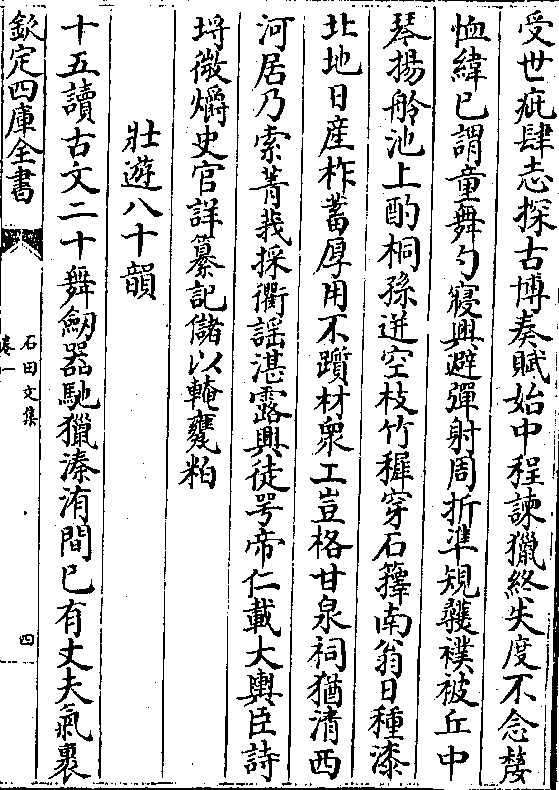 受世疵肆志探古博奏賦始中程諫獵終失度不念嫠
恤緯已謂童舞勺寢興避彈射周折準規彠襆被丘中
琴揚舲池上酌桐孫迸空枝竹穉穿石籜南翁日種漆
北地日産柞蓄厚用不躓材衆工豈格甘泉祠猶清西
河居乃索菁莪採衢謡湛露興徒咢帝仁載大輿臣詩
埓微爝史官詳纂記儲以軶甕粕
壮遊八十韻
十五讀古文二十舞劒器馳獵溱洧間已有丈夫氣裹
欽定四庫全書
石田文集
卷一
四